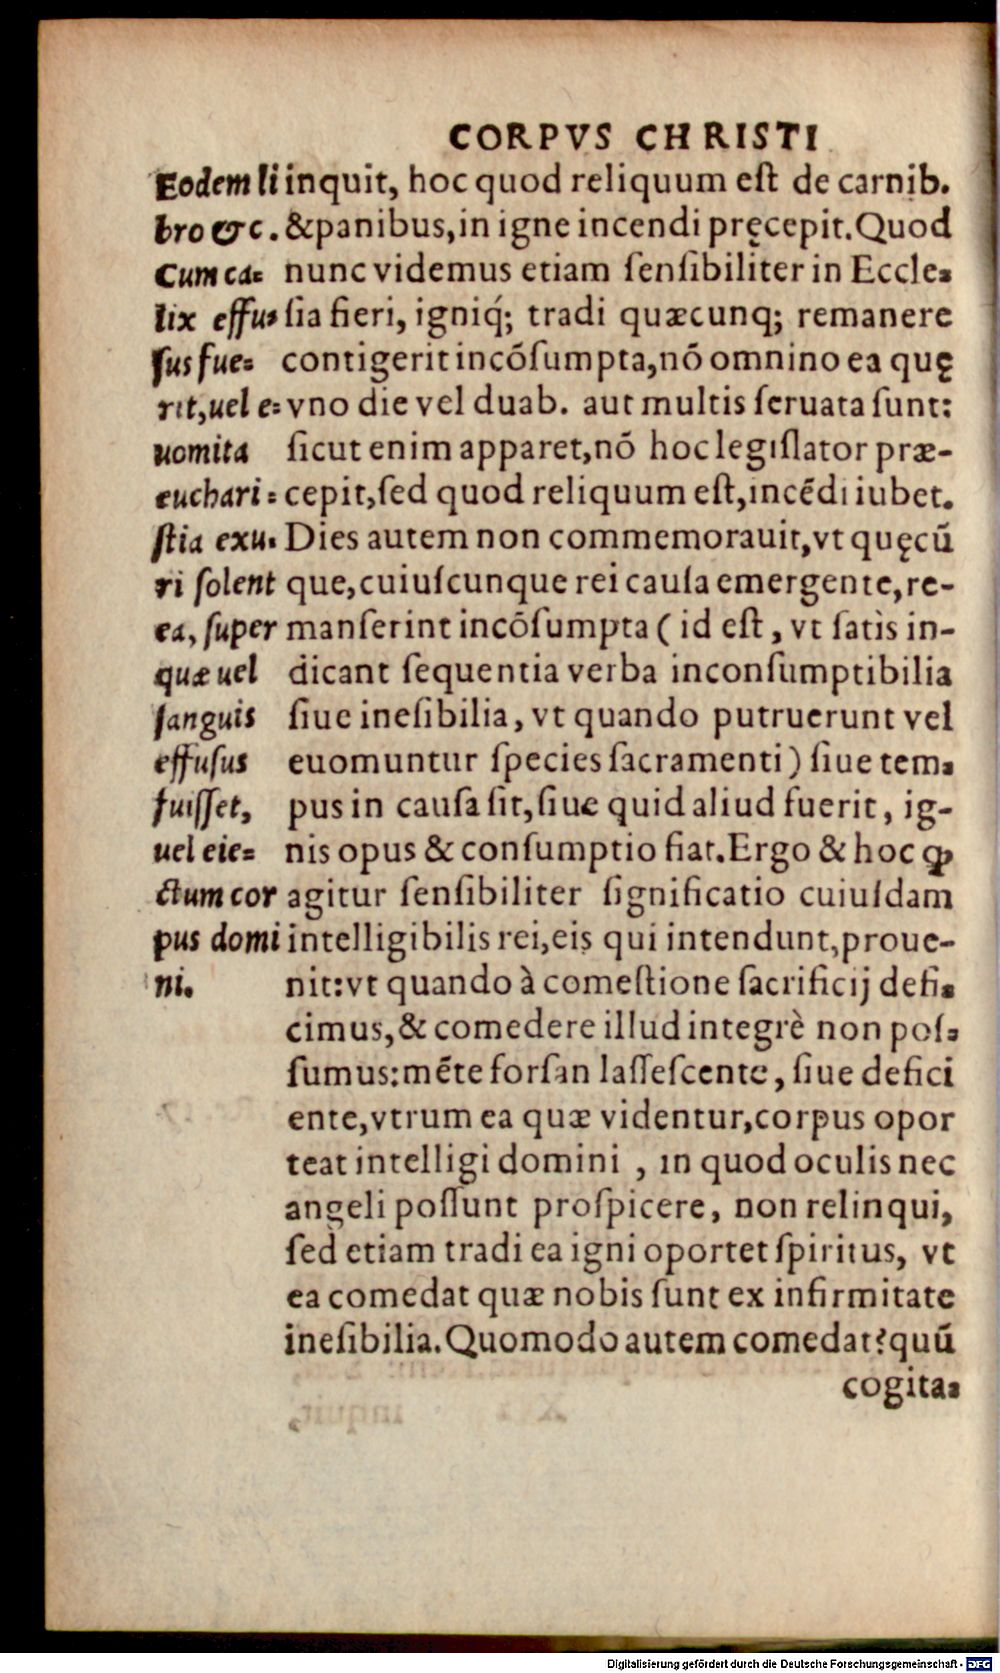 CORPVS CHRISTI
Eodem li
bro &c.
Cum ca=
lix effu=
ſus fue=
rit,uel e=
uomita
euchari=
ſtia exu=
ri ſolent
ea, ſuper
quæ uel
ſanguis
effuſus
fuiſſet,
uel eie=
ctum cor
pus domi
ni.
inquit, hoc quod reliquum eſt de carnib.
&panibus,in igne incendi pręcepit.Quod
nunc videmus etiam ſenſibiliter in Eccle=
ſia fieri, igniq́; tradi quæcunq; remanere
contigerit incōſumpta,nō omnino ea quę
vno die vel duab. aut multis ſeruata ſunt:
ſicut enim apparet,nō hoc legiſlator præ-
cepit,ſed quod reliquum eſt,incēdi iubet.
Dies autem non commemorauit,vt quęcū
que,cuiuſcunque rei cauſa emergente,re-
manſerint incōſumpta ( id eſt , vt ſatìs in-
dicant ſequentia verba inconſumptibilia
ſiue ineſibilia, vt quando putruerunt vel
euomuntur ſpecies ſacramenti ) ſiue tem=
pus in cauſa ſit,ſiue quid aliud fuerit, ig-
nis opus & conſumptio fiat.Ergo & hoc ꝙ
agitur ſenſibiliter ſignificatio cuiuſdam
intelligibilis rei,eis qui intendunt,proue-
nit:vt quando à comeſtione ſacrificij defi=
cimus,& comedere illud integrè non poſ=
ſumus:mēte forſan laſſeſcente, ſiue defici
ente,vtrum ea quæ videntur,corpus opor
teat intelligi domini , in quod oculis nec
angeli poſſunt proſpicere, non relinqui,
ſed etiam tradi ea igni oportet ſpiritus, vt
ea comedat quæ nobis ſunt ex infirmitate
ineſibilia.Quomodo autem comedat?quū
cogita=
Digitalisierung gefördert durch die Deutsche Forschungsgemeinschaft - DFG